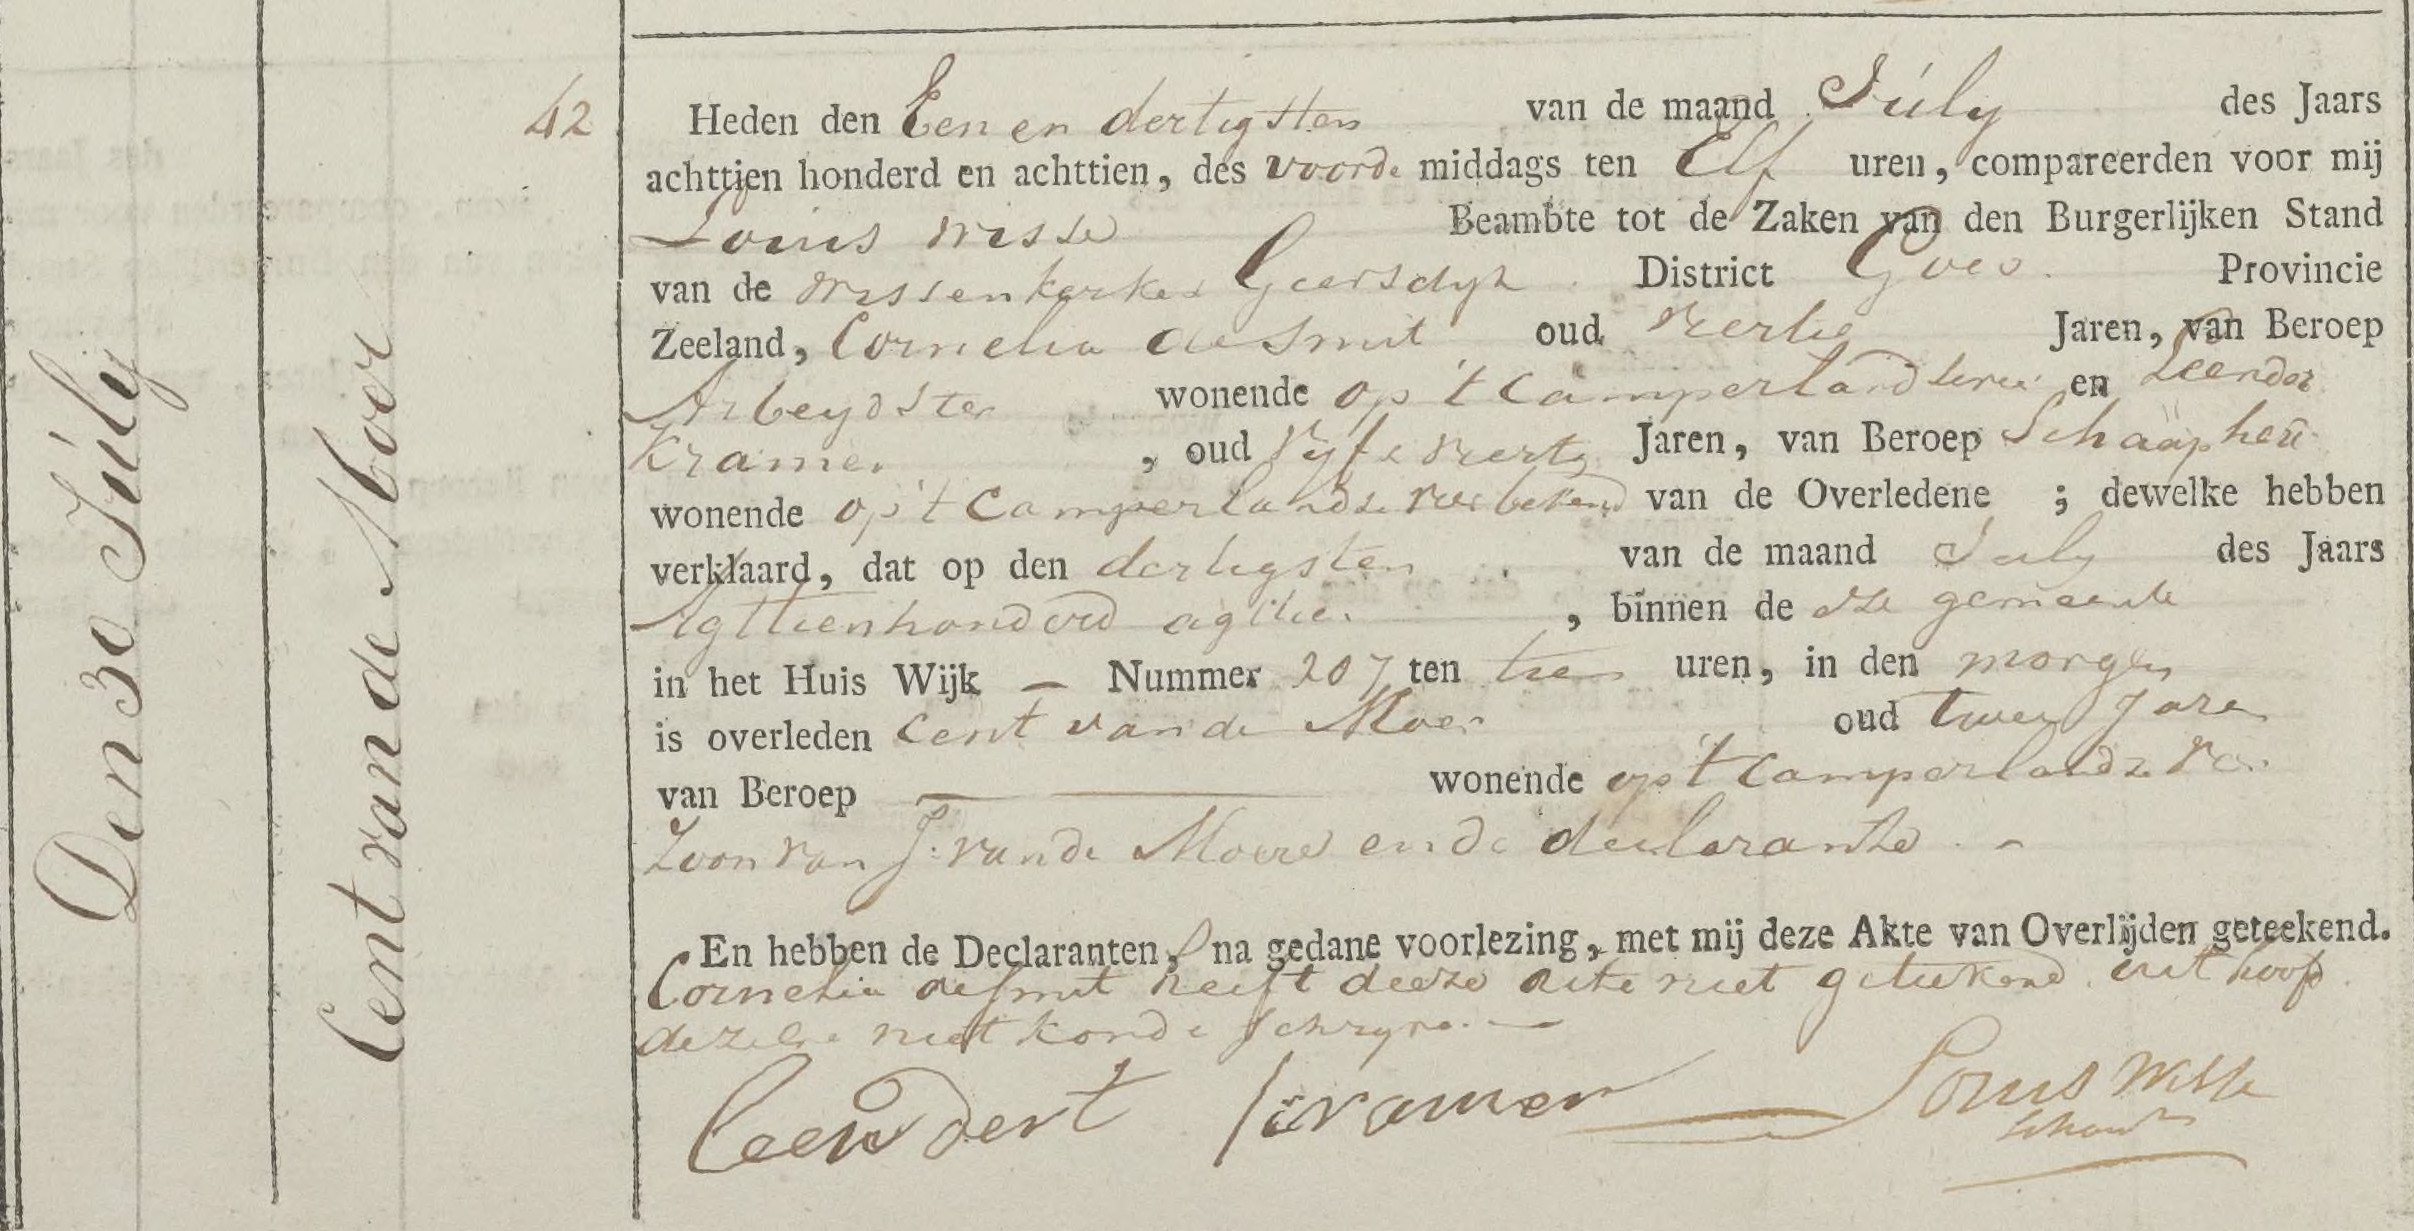 Den 30 Júly
Cent van de Moor
42
Heden den Een en dertigsten van de maand Júly des Jaars
achttien honderd en achttien, des voorde middags ten Elf uren, compareerden voor mij
Louis Wisse Beambte tot de Zaken van den Burgerlijken Stand
van de Wissenkerke Geersdyk District Goes Provincie
Zeeland, Cornelia de Smit oud Jaren, van Beroep
Arbeydster wonende op 't Camperlandse en Leender
Kramer, oud vyf e veertig Jaren, van Beroep Schaapher
wonende op 't Camperlandse veer bekend van de Overledene ; dewelke hebben
verklaard, dat op den dertigsten van de maand July des Jaars
Agttienhonderd agttien, binnen de ze gemeente
in het Huis Wijk — Nummer 207 ten tien uren, in den morgen
is overleden Cent van de Moer oud twee Jaren
van Beroep — wonende op 't Camperlandse
Zoon van J: van de Moere en de declarante. -
En hebben de Declaranten, na gedane voorlezing, met mij deze Akte van Overlijden geteekend.
Cornelia de Smit heeft deeze akte niet getekend uit hoofd
dezelve niet konde schryve. —
Leendert Kramer Louis Wisse
Schout